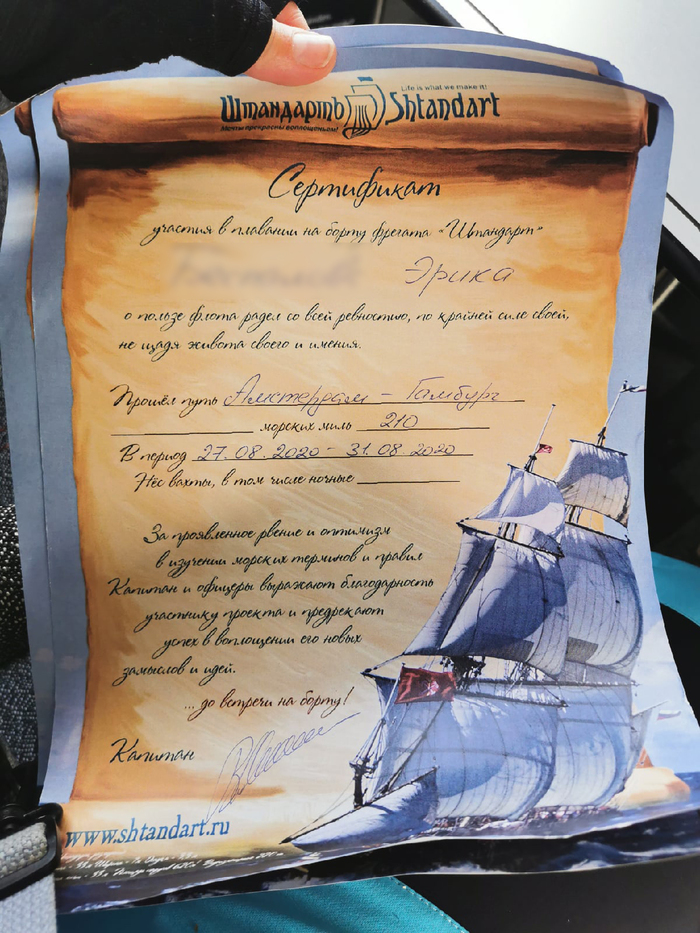 Штандартъ
Мечты прекрасны воплощеньем!
Life is what we make it!
Shtandart
Сертификат
участия в плавании на борту фрегата «Штандарт»
Эрика
о пользе флота радел со всей ревностию, по крайней силе своей,
не щадя живота своего и имения.
Прошёл путь Амстердам – Гамбург
морских миль 210
В период 27.08.2020 – 31.08.2020
Нёс вахты, в том числе ночные
За проявленное рвение и оптимизм
в изучении морских терминов и правил
Капитан и офицеры выражают благодарность
участнику проекта и предрекают
успех в воплощении его новых
замыслов и идей.
...до встречи на борту!
Капитан
www.shtandart.ru